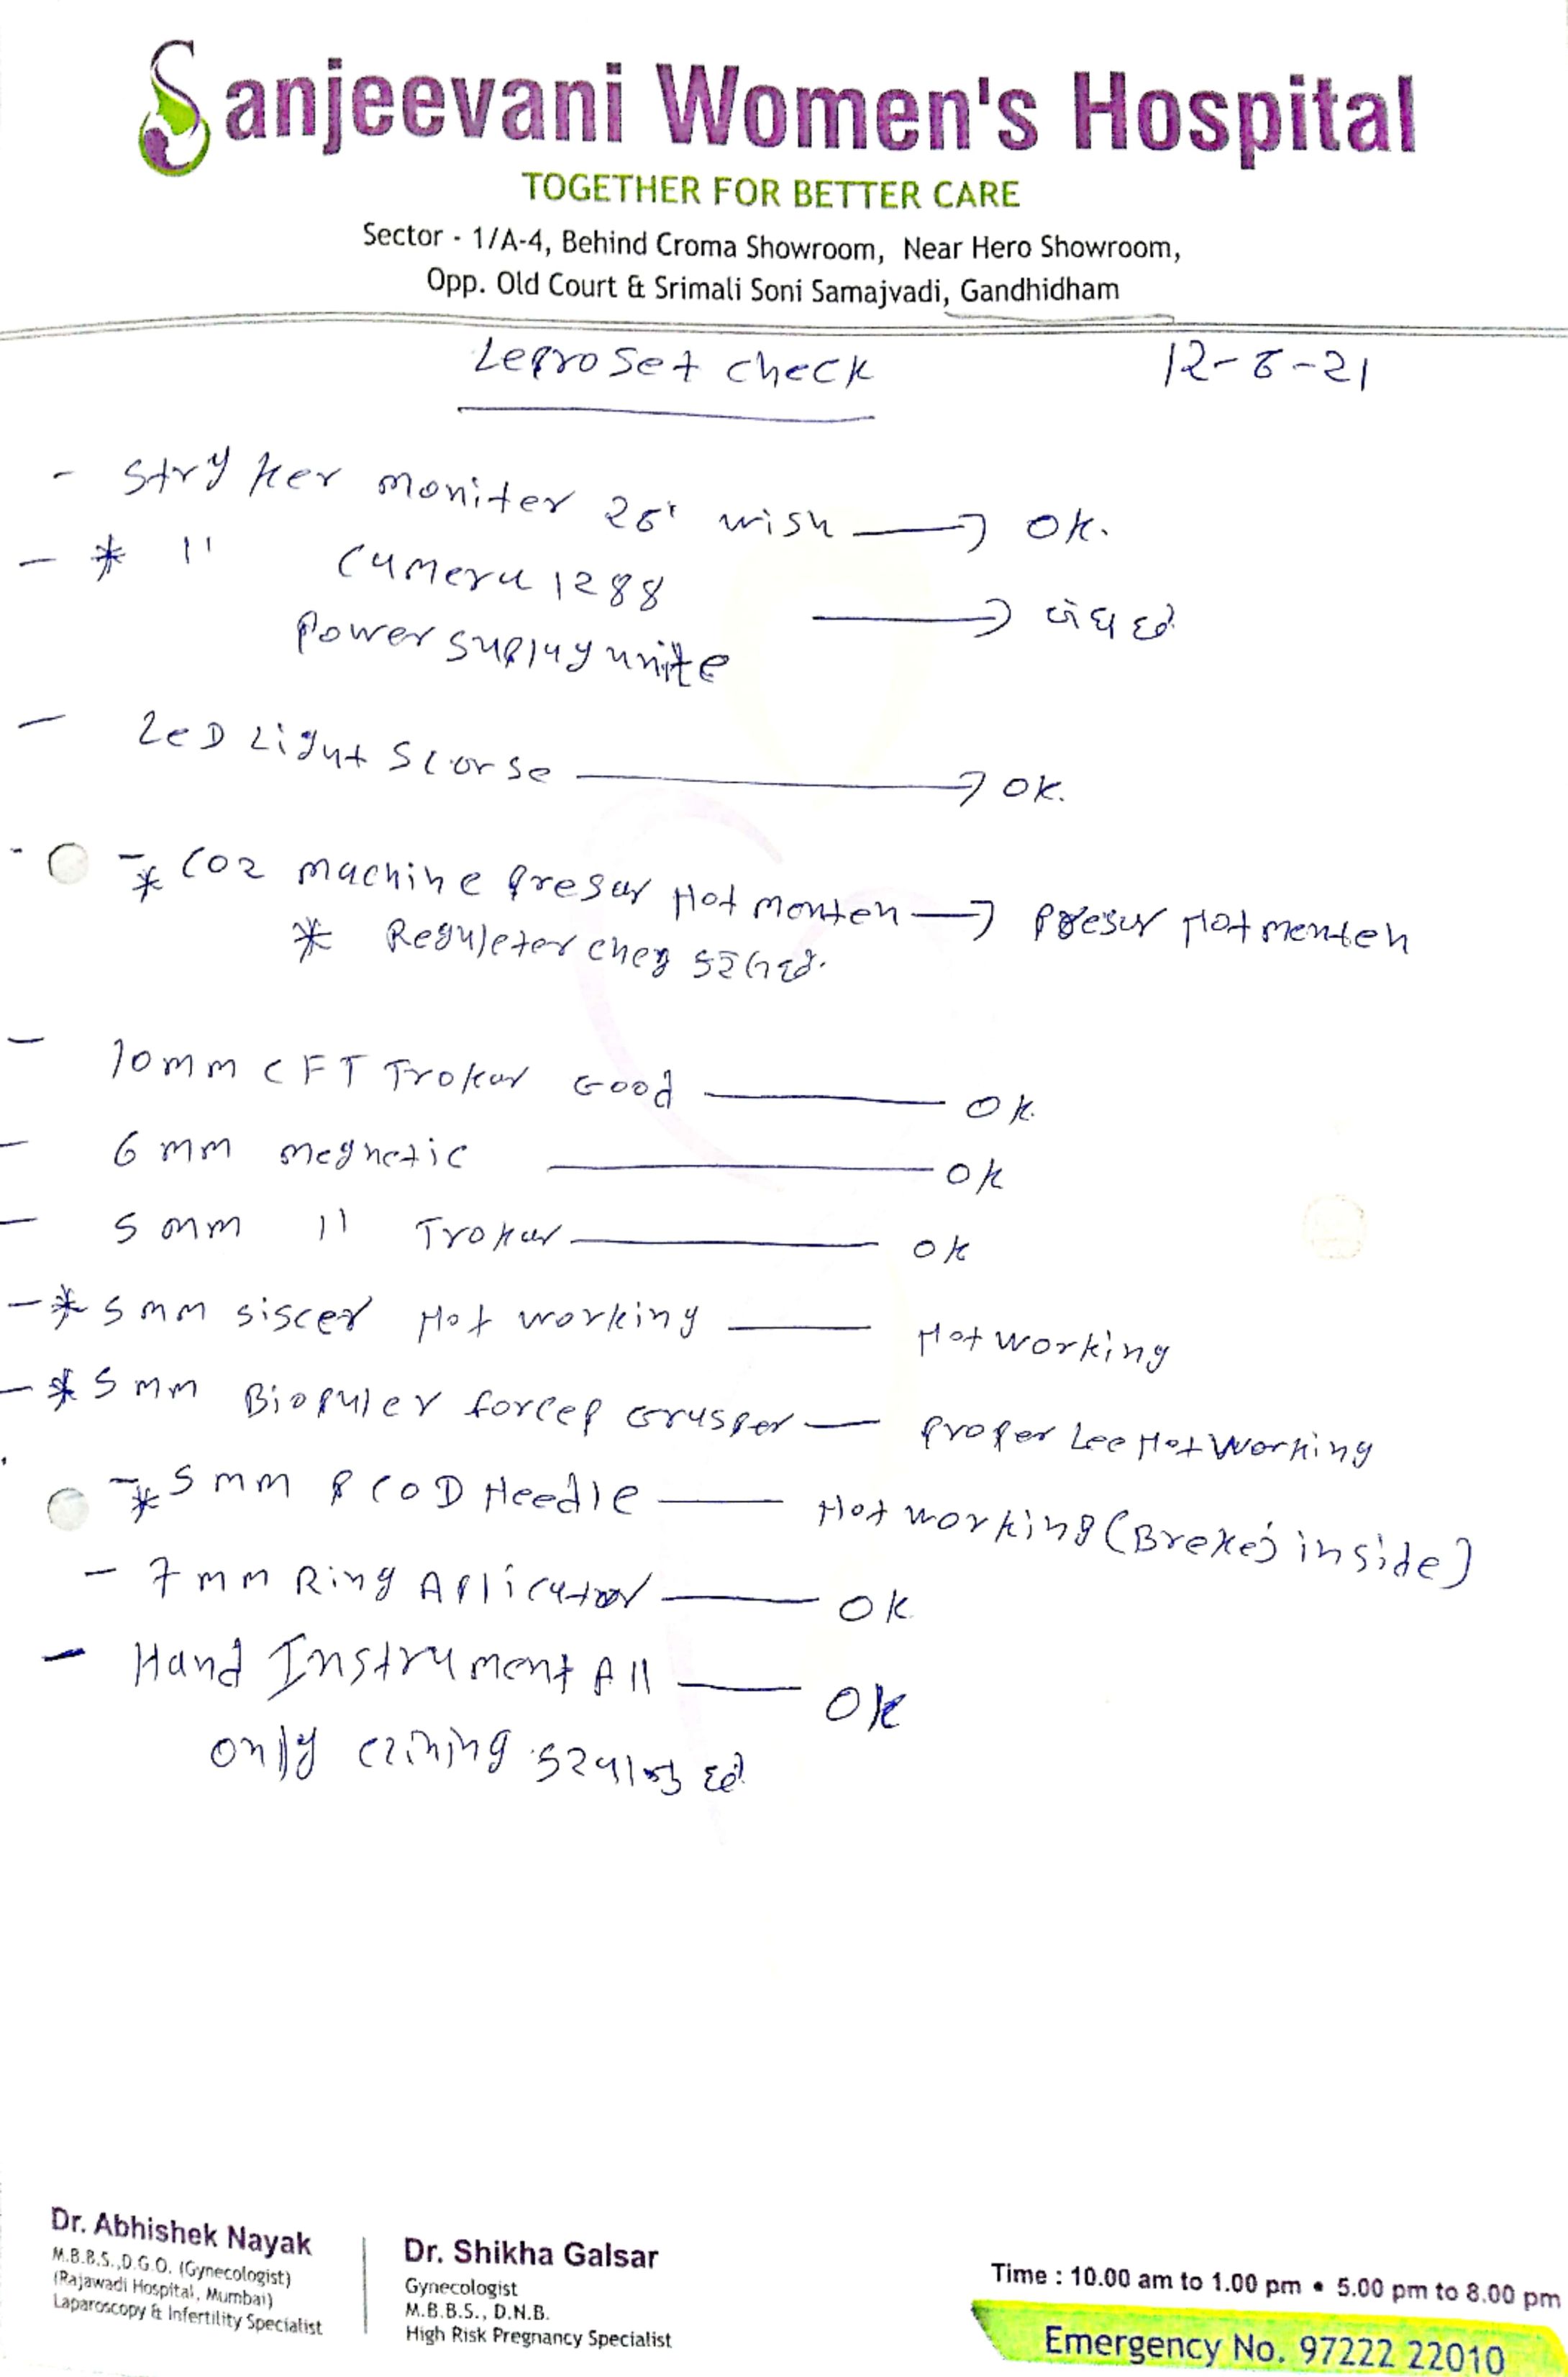 Sanjeevani Women's Hospital
TOGETHER FOR BETTER CARE
Sector - 1/A-4, Behind Croma Showroom, Near Hero Showroom,
Opp. Old Court & Srimali Soni Samajvadi, Gandhidham
Lepro Set check 12-6-21
- Stryker moniter 26" wish → OK.
- * " Camera 1288
Power suplay unite →
- LeD Light Scorse → OK.
- * CO2 machine presar Not menten → Presur Not menten
* Reguleter cheq
- 10mm CFT Trokar Good — OK.
- 6 mm megnetic — Ok
- 5 mm " Trokar — Ok
- * 5 mm siscer Not working — Not working
- * 5 mm Biopuler forcep Grasper — Proper Lee Not Working
- * 5 mm PCOD Needle — Not working (Brekes inside)
- 7 mm Ring Aplicator — OK
- Hand Instrument All — Ok
only
Dr. Abhishek Nayak
M.B.B.S.,D.G.O. (Gynecologist)
(Rajawadi Hospital, Mumbai)
Laparoscopy & Infertility Specialist
Dr. Shikha Galsar
Gynecologist
M.B.B.S., D.N.B.
High Risk Pregnancy Specialist
Time : 10.00 am to 1.00 pm • 5.00 pm to 8.00 pm
Emergency No. 97222 22010